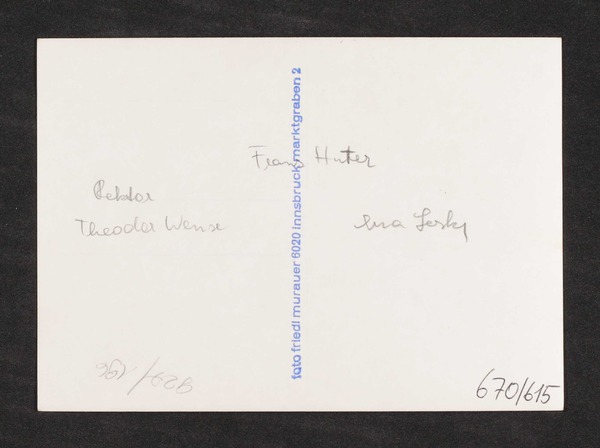 foto friedl murauer 6020 innsbruck, marktgraben 2
Franz Huter
Rektor
Theodor Wense
Lesky
670/615